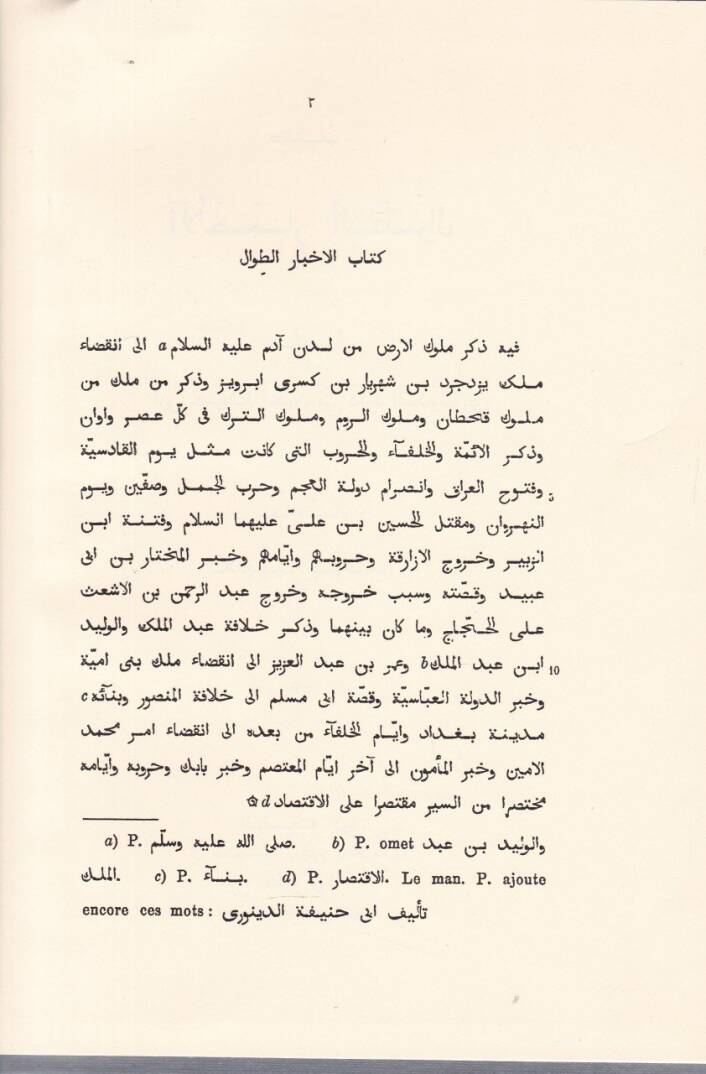 ٢
كتاب الاخبار الطِوال
فيه ذكر ملوك الارض من لدن آدم عليه السلام a الى انقضاء
ملك يزدجرد بن شهريار بن كسرى ابرويز وذكر من ملك من
ملوك قحطان وملوك الروم وملوك الترك فى كلّ عصر واوان
وذكر الائمّة والخلفآء والحروب التى كانت مثل يوم القادسيّة
5 وفتوح العراق وانصرام دولة العجم وحرب الجمل وصفّين ويوم
النهروان ومقتل الحسين بن علىّ عليهما السلام وفتنة ابن
الزبير وخروج الازارقة وحروبهم وايّامهم وخبر المختار بن ابى
عبيد وقصّته وسبب خروجه وخروج عبد الرحمن بن الاشعث
على الحجّاج وما كان بينهما وذكر خلافة عبد الملك والوليد
10 ابن عبد الملك b وعمر بن عبد العزيز الى انقضاء ملك بنى اميّة
وخبر الدولة العبّاسيّة وقصّة ابى مسلم الى خلافة المنصور وبنائه c
مدينة بغداد وايّام الخلفآء من بعده الى انقضاء امر محمد
الامين وخبر المأمون الى آخر ايّام المعتصم وخبر بابك وحروبه وايّامه
مختصرا من السير مقتصرا على الاقتصاد d ۞
a) P. صلى الله عليه وسلّم. b) P. omet والوليد بن عبد
الملك. c) P. بنآء. d) P. الاقتصار. Le man. P. ajoute
encore ces mots: تأليف ابى حنيفة الدينورى